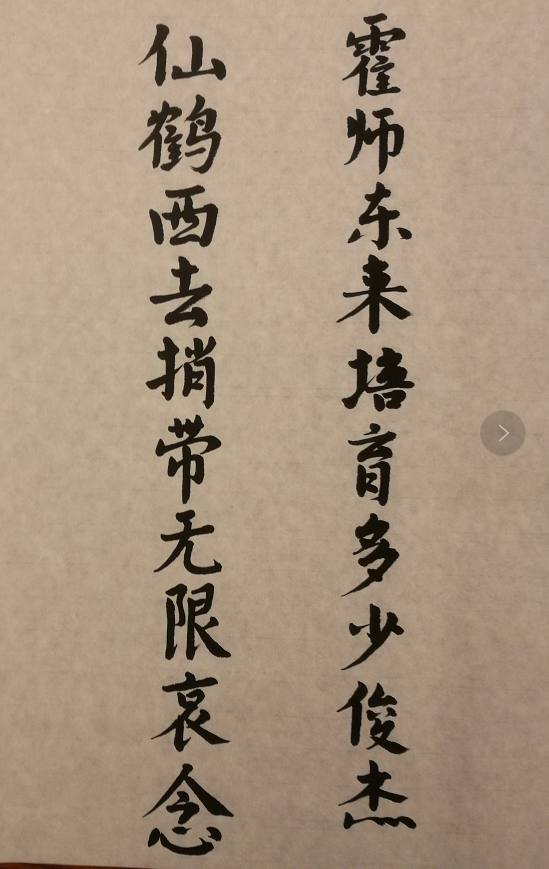 霍师东来培育多少俊杰
仙鹤西去捎带无限哀念